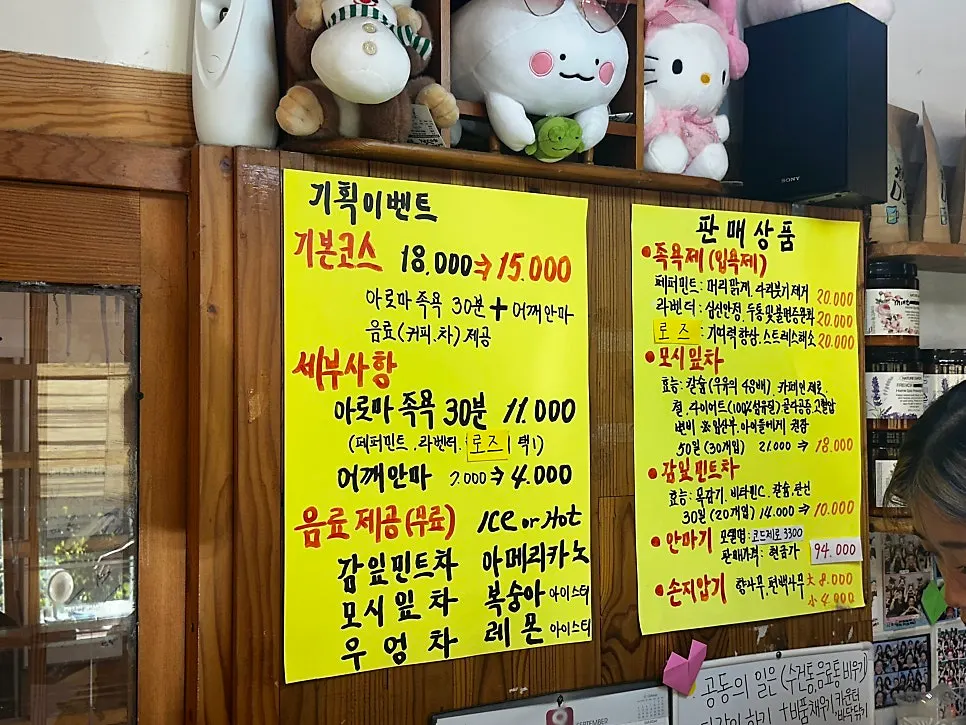 기획이벤트
기본코스 18.000→15.000
아로마 족욕 30분 + 어깨안마
음료(커피.차) 제공
세부사항
아로마 족욕 30분 11.000
(페퍼민트.라벤더.로즈 1택1)
어깨안마 7.000→4.000
음료 제공(무료) Ice or Hot
감잎민트차 아메리카노
모시잎차 복숭아 아이스티
우엉차 레몬 아이스티
판매상품
•족욕제(입욕제)
페퍼민트: 머리맑게. 다리붓기제거 20.000
라벤더: 심신안정. 두통및불면증완화 20.000
로즈: 기억력향상. 스트레스해소 20.000
•모시잎차
효능: 칼슘(우유의 48배). 카페인제로.
철. 다이어트(100%섬유질) 골다공증. 고혈압
변비 ※임산부. 아이들에게 권장
50일(30개입) 21.000→18.000
•감잎민트차
효능: 목감기. 비타민C. 칼슘. 탄닌
30일(20개입) 14.000→10.000
•안마기 모델명: 코드제로 3300
판매가격: 현금가 94.000
•손지압기 향나무.편백나무 大 8.000
小 4.000
SONY
SEPTEMBER
공동의 일은(수거통,음료통 비우기)